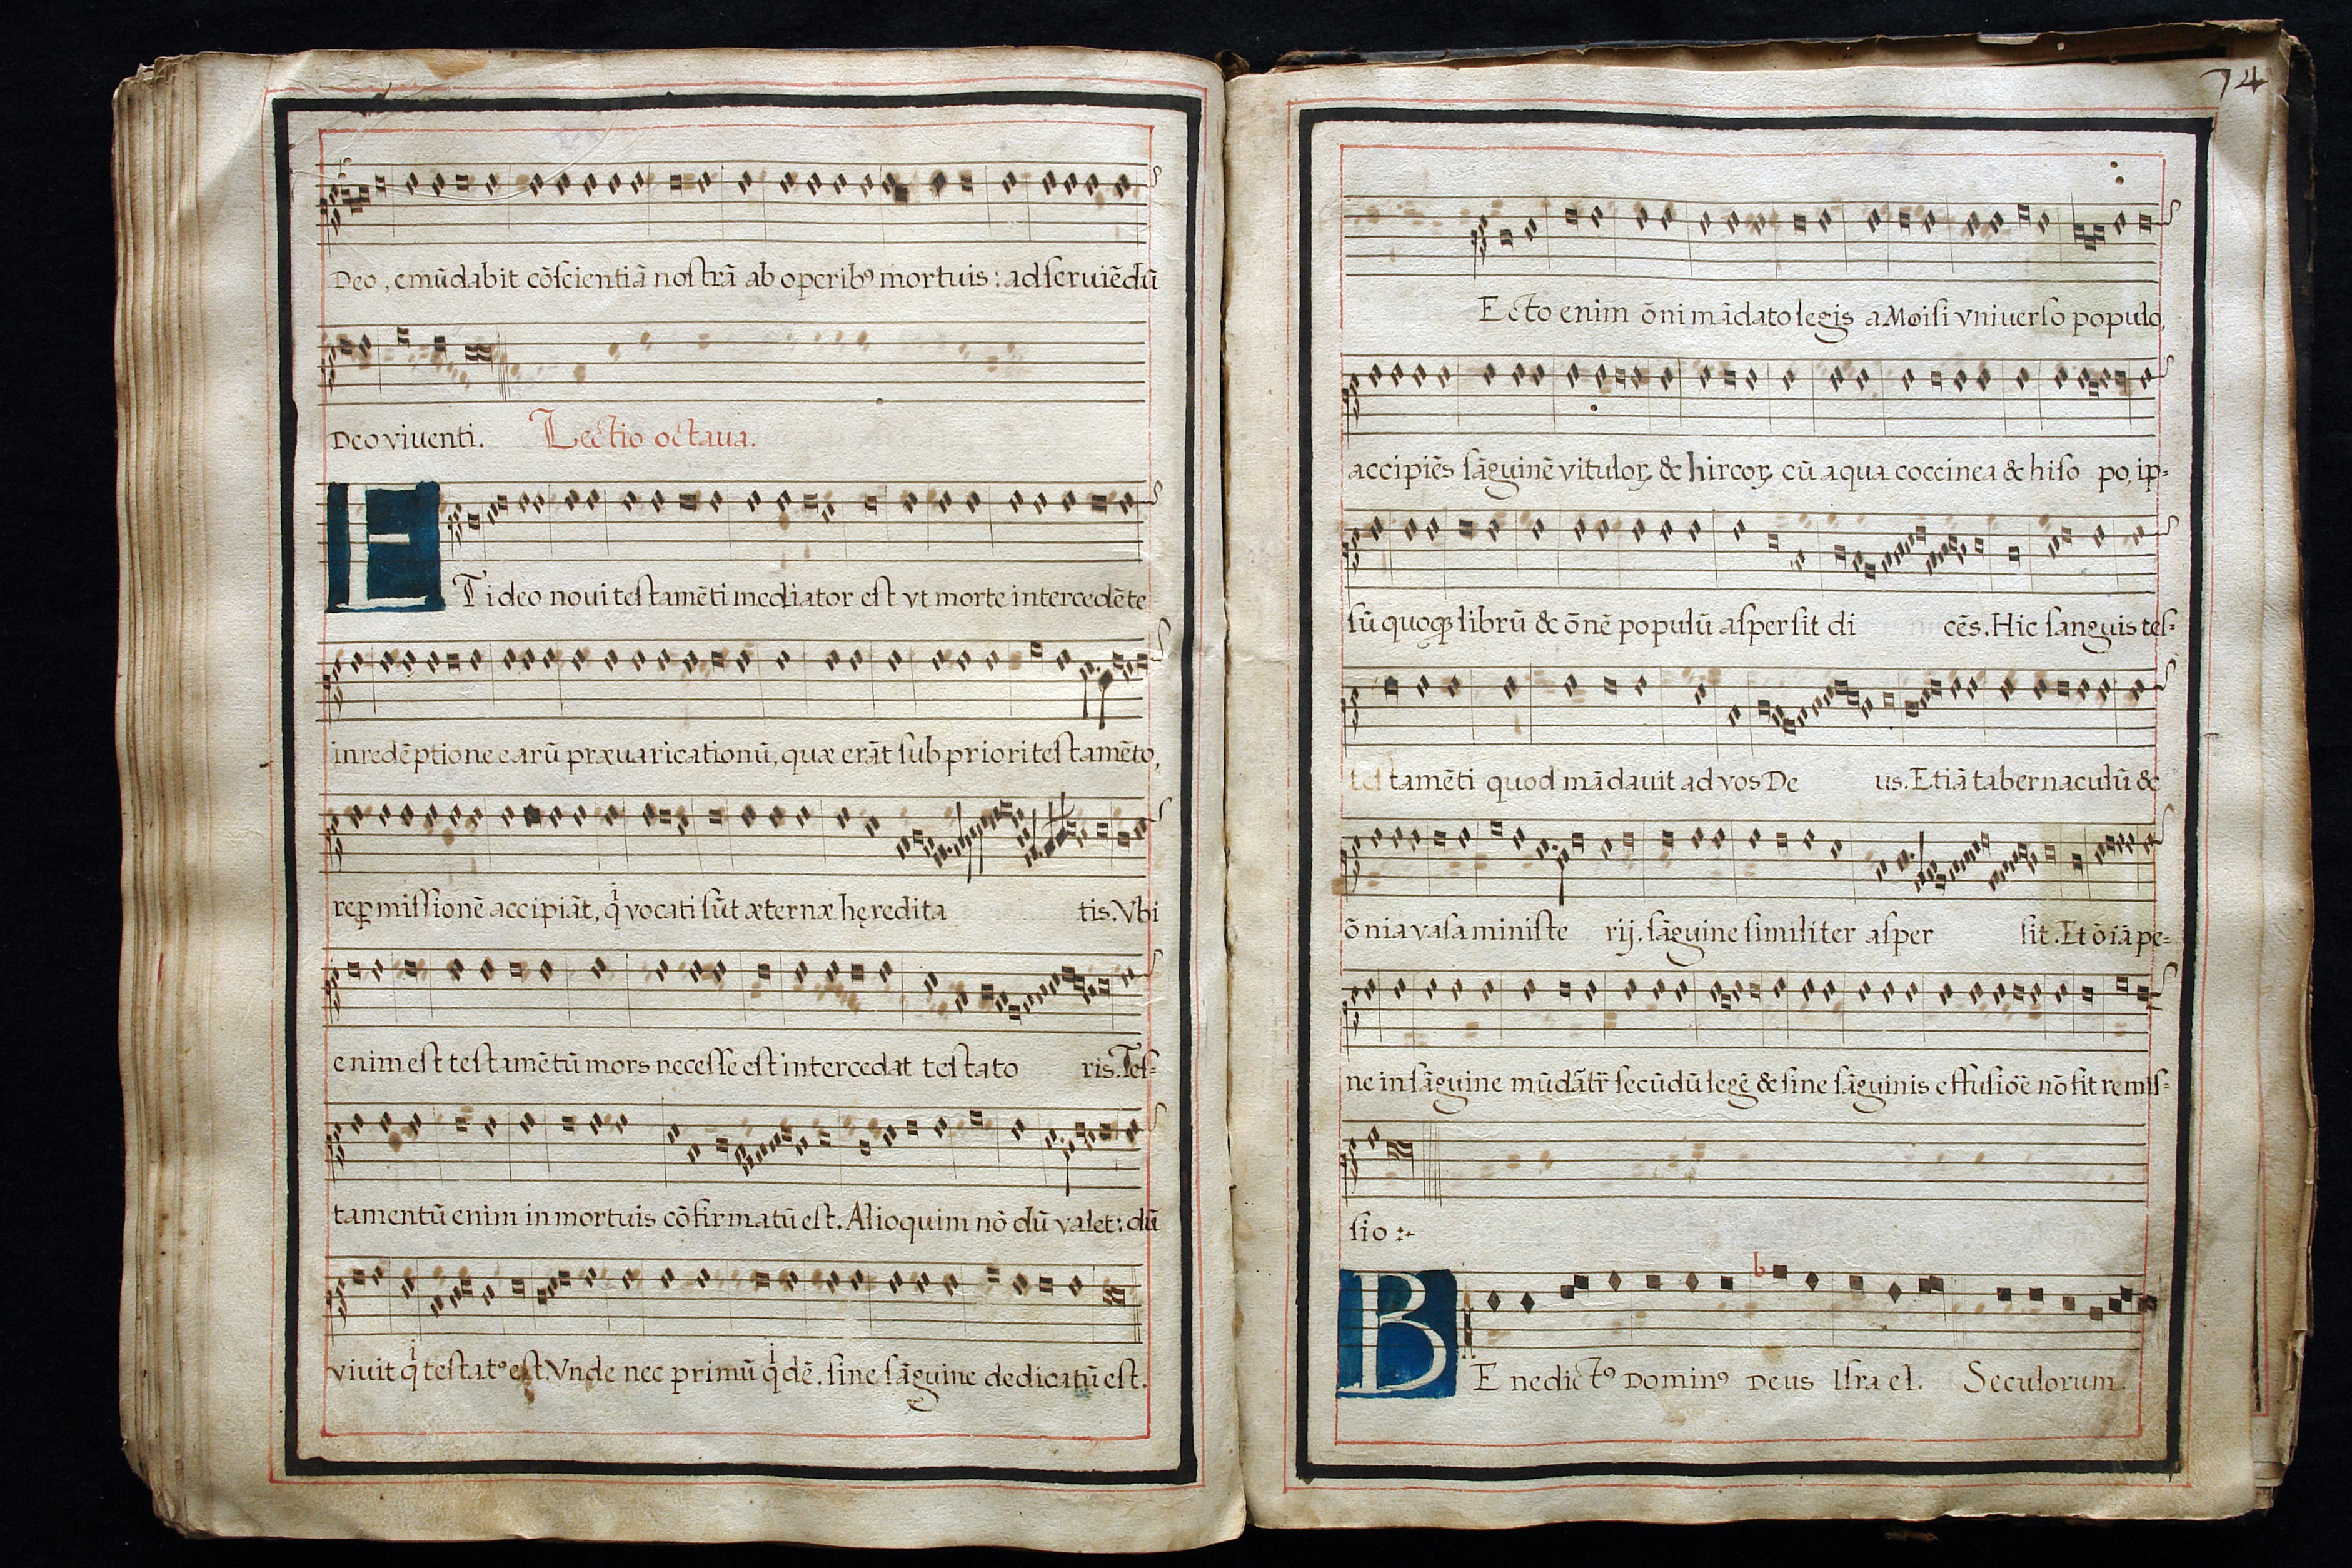 Deo, emūdabit cōſcientiā noſtrā ab operibꝰ mortuis: ad ſeruiēdū
Deo viuenti. Lectio octaua.
ETideo noui teſtamēti mediator eſt vt morte intercedēte
in redēptione earū præuaricationū, quæ erāt ſub priori teſtamēto,
reꝓmiſſionē accipiāt, qͥ vocati ſūt æternæ hęredita tis. Vbi
enim eſt teſtamētū mors neceſſe eſt intercedat teſtato ris. Teſ-
tamentū enim in mortuis cōfirmatū eſt. Alioquim nō dū valet: dū
viuit qͥ teſtatꝰ eſt. Vnde nec primū qͥdē. ſine ſāguine dedicatū eſt.
74
Ecto enim ōni mādato legis a Moiſi vniuerſo populo,
accipiēs ſāguinē vituloꝝ & hircoꝝ cū aqua coccinea & hiſo po, ip-
ſū quoqꝫ librū & ōnē populū aſperſit di cēs. Hic ſanguis teſ-
teſ tamēti quod mādauit ad vos De us. Etiā tabernaculū &
ōnia vaſa miniſte rij. ſāguine ſimiliter aſper ſit. Et ōiā pe-
ne in ſāguine mūdātr̄ ſecūdū legē & ſine ſāguinis effuſiōē nō fit remiſ-
ſio :-
b
BEnedictꝰ Dominꝰ Deus Iſrael. Seculorum.